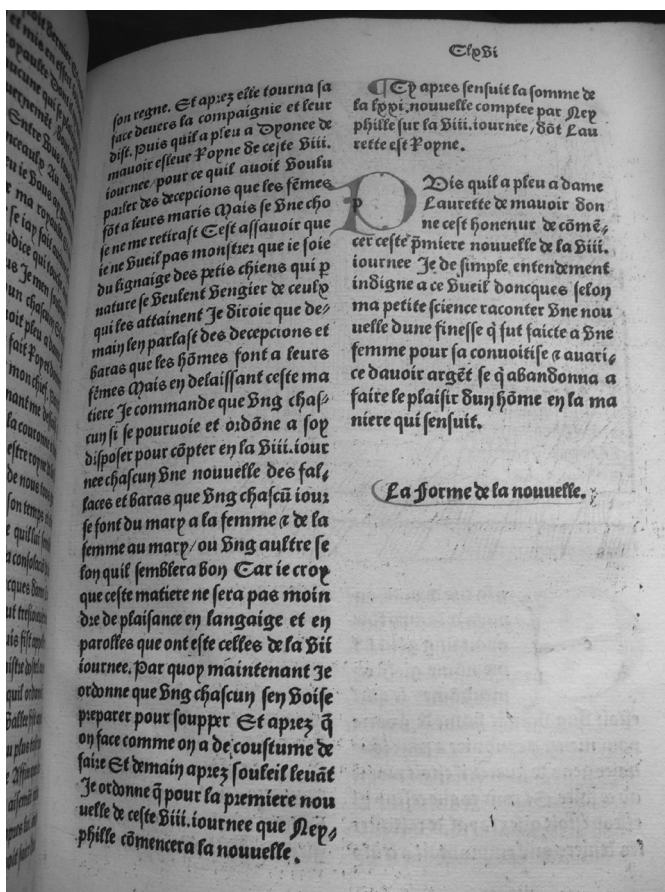 Clxvi
son regne. Et aprez elle tourna sa
face deuers la compaignie et leur
dist. puis quil a pleu a Dyonee de
mauoir esleue Royne de ceste viii.
iournee/pour ce quil auoit voulu
parler des decepcions que les fẽmes
fõt a leurs maris Mais se vne cho
se ne me retirast Cest assauoir que
ie ne vueil pas monstrer que ie soie
du lignaige des petis chiens qui p
nature se veulent vengier de ceulx
qui les attainent Je diroie que de⸗
main len parlast des decepcions et
baras que les hõmes font a leurs
fẽmes Mais en delaissant ceste ma
tiere Je commande que vng chas⸗
cun si se pouruoie et ordõne a soy
disposer pour cõpter en la viii.iour
nee chascun vne nouuelle des fal⸗
laces et baras que vng chascũ iour
se font du mary a la femme ⁊ de la
femme au mary/ou vng aultre se
lon quil semblera bon Car ie croy
que ceste matiere ne sera pas moin
dre de plaisance en langaige et en
parolles que ont este celles de la vii
iournee. Par quoy maintenant Je
ordonne que vng chascun sen voise
preparer pour soupper Et aprez q̃
on face comme on a de coustume de
faire Et demain aprez souleil leuãt
Je ordonne q̃ pour la premiere nou
uelle de ceste viii.iournee que Ney⸗
phille cõmencera la nouuelle.
¶Cy apres sensuit la somme de
la lxxi.nouuelle comptee par Ney
phille sur la viii.iournee/dõt Lau
rette est Royne.
PUis quil a pleu a dame
Laurette de mauoir don
ne cest honenur de cõmẽ⸗
cer ceste p̃miere nouuelle de la viii.
iournee Je de simple entendement
indigne a ce vueil doncques selon
ma petite science raconter vne nou
uelle dune finesse q̃ fut faicte a vne
femme pour sa conuoitise ⁊ auari⸗
ce dauoir argẽt se q̃ abandonna a
faire le plaisir dun hõme en la ma
niere qui sensuit.
La Forme de la nouuelle.